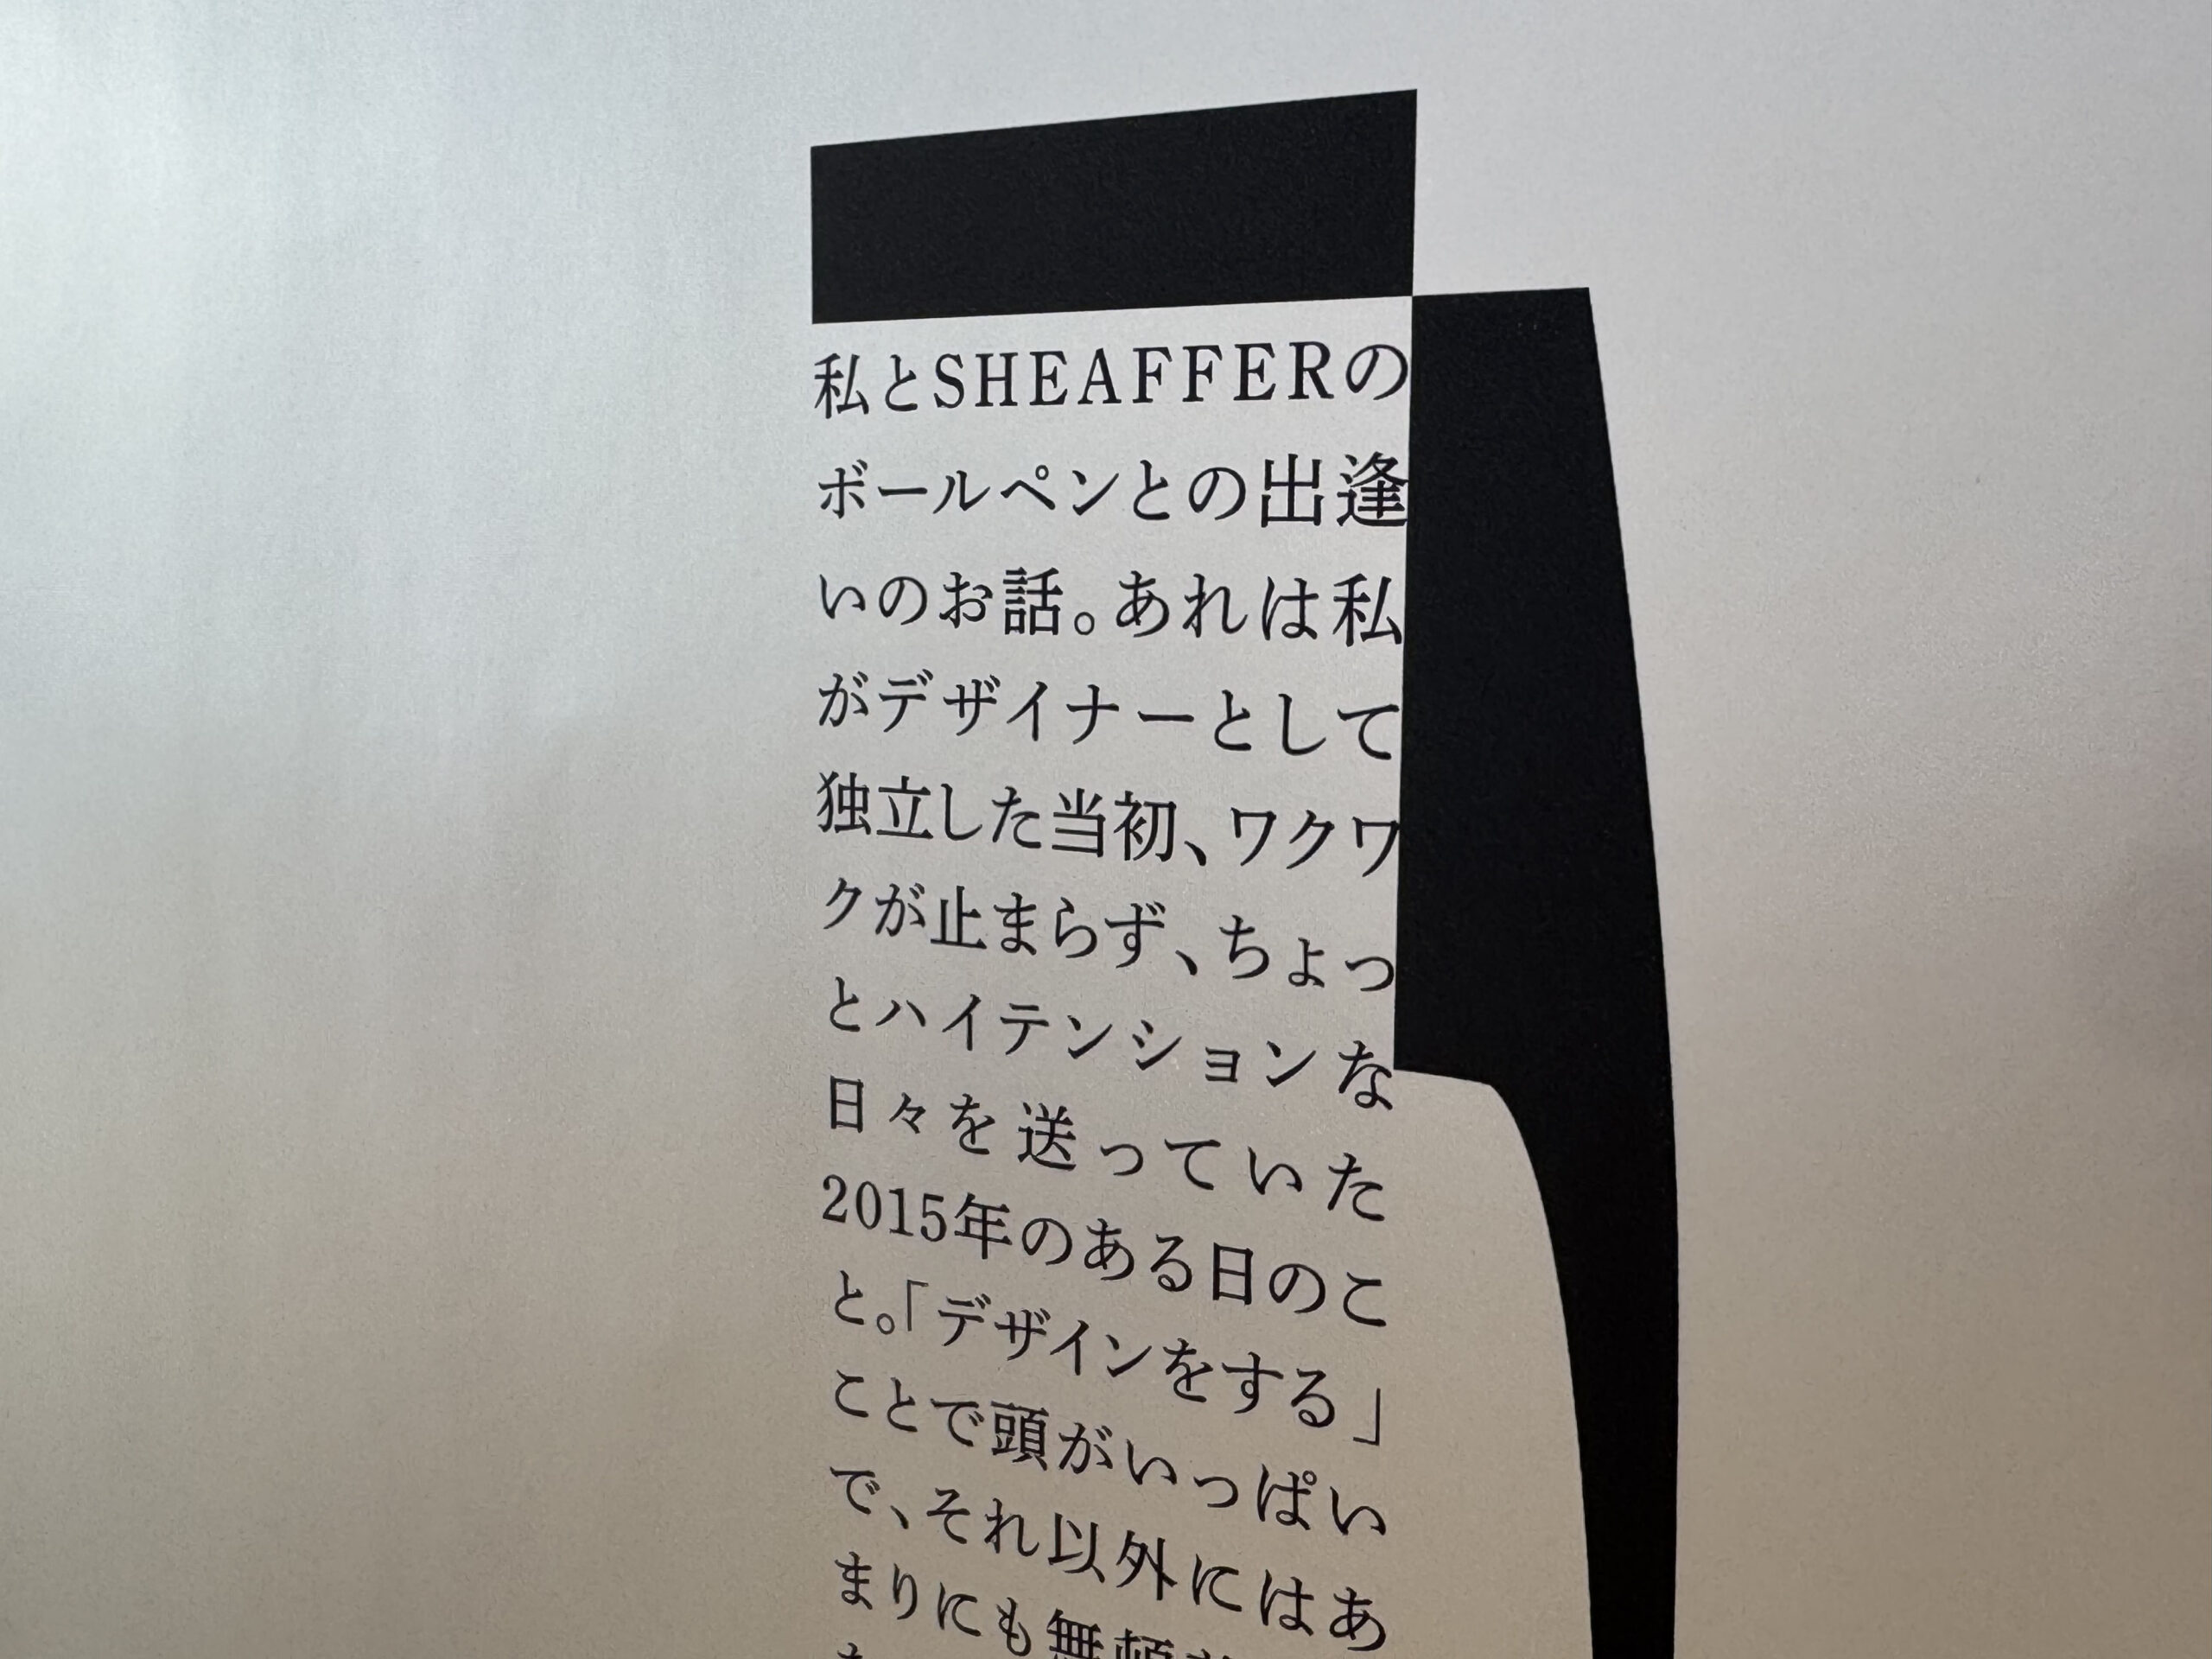 私とSHEAFFERの
ボールペンとの出逢
いのお話。あれは私
がデザイナーとして
独立した当初、ワクワ
クが止まらず、ちょっ
とハイテンションな
日々を送っていた
2015年のある日のこ
と。「デザインをする」
ことで頭がいっぱい
で、それ以外にはあ
まりにも無頓